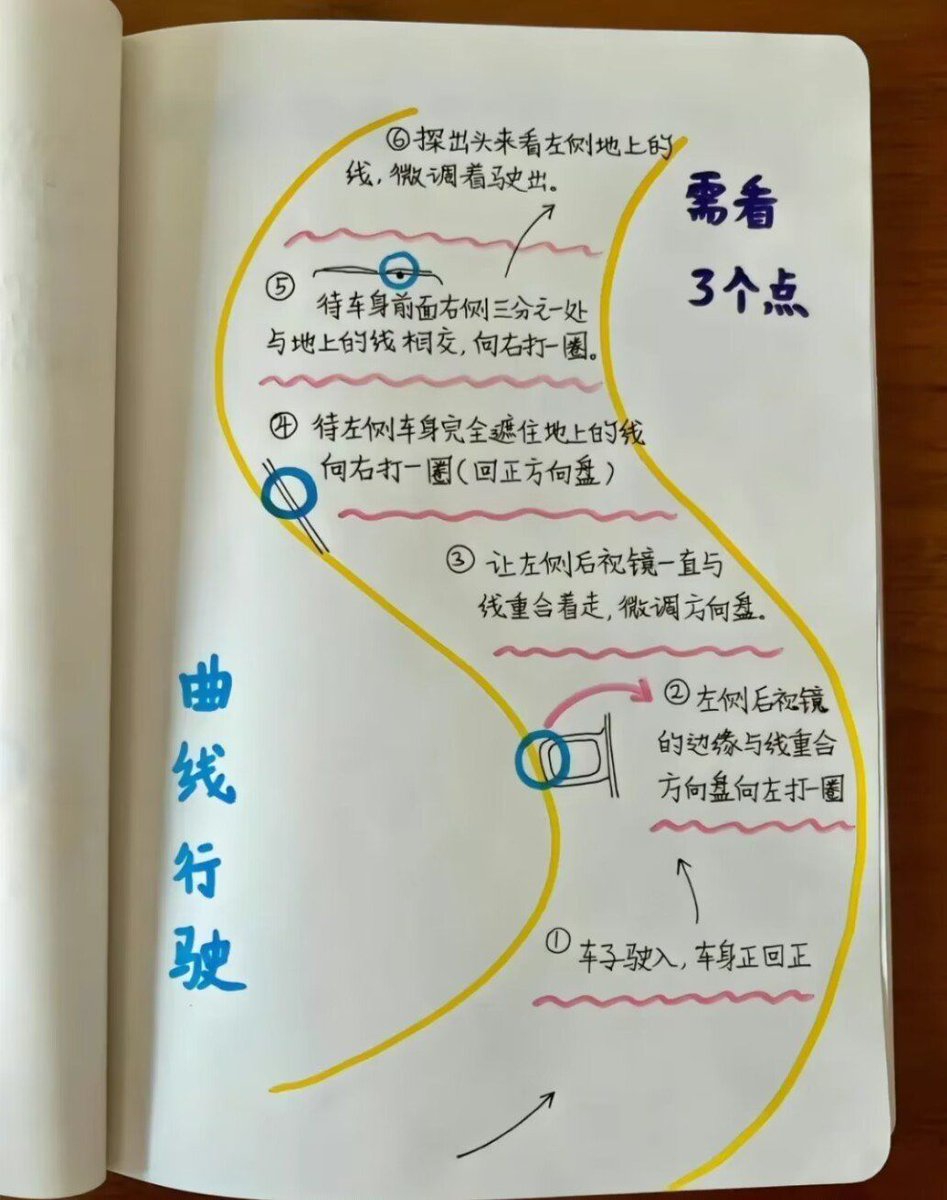 ⑥探出头来看左侧地上的
线,微调着驶出。
需看
3个点
⑤
待车身前面右侧三分之一处
与地上的线相交,向右打一圈。
④ 待左侧车身完全遮住地上的线
向右打一圈(回正方向盘)
③ 让左侧后视镜一直与
线重合着走,微调方向盘。
②左侧后视镜
的边缘与线重合
方向盘向左打一圈
① 车子驶入,车身正回正
曲
线
行
驶